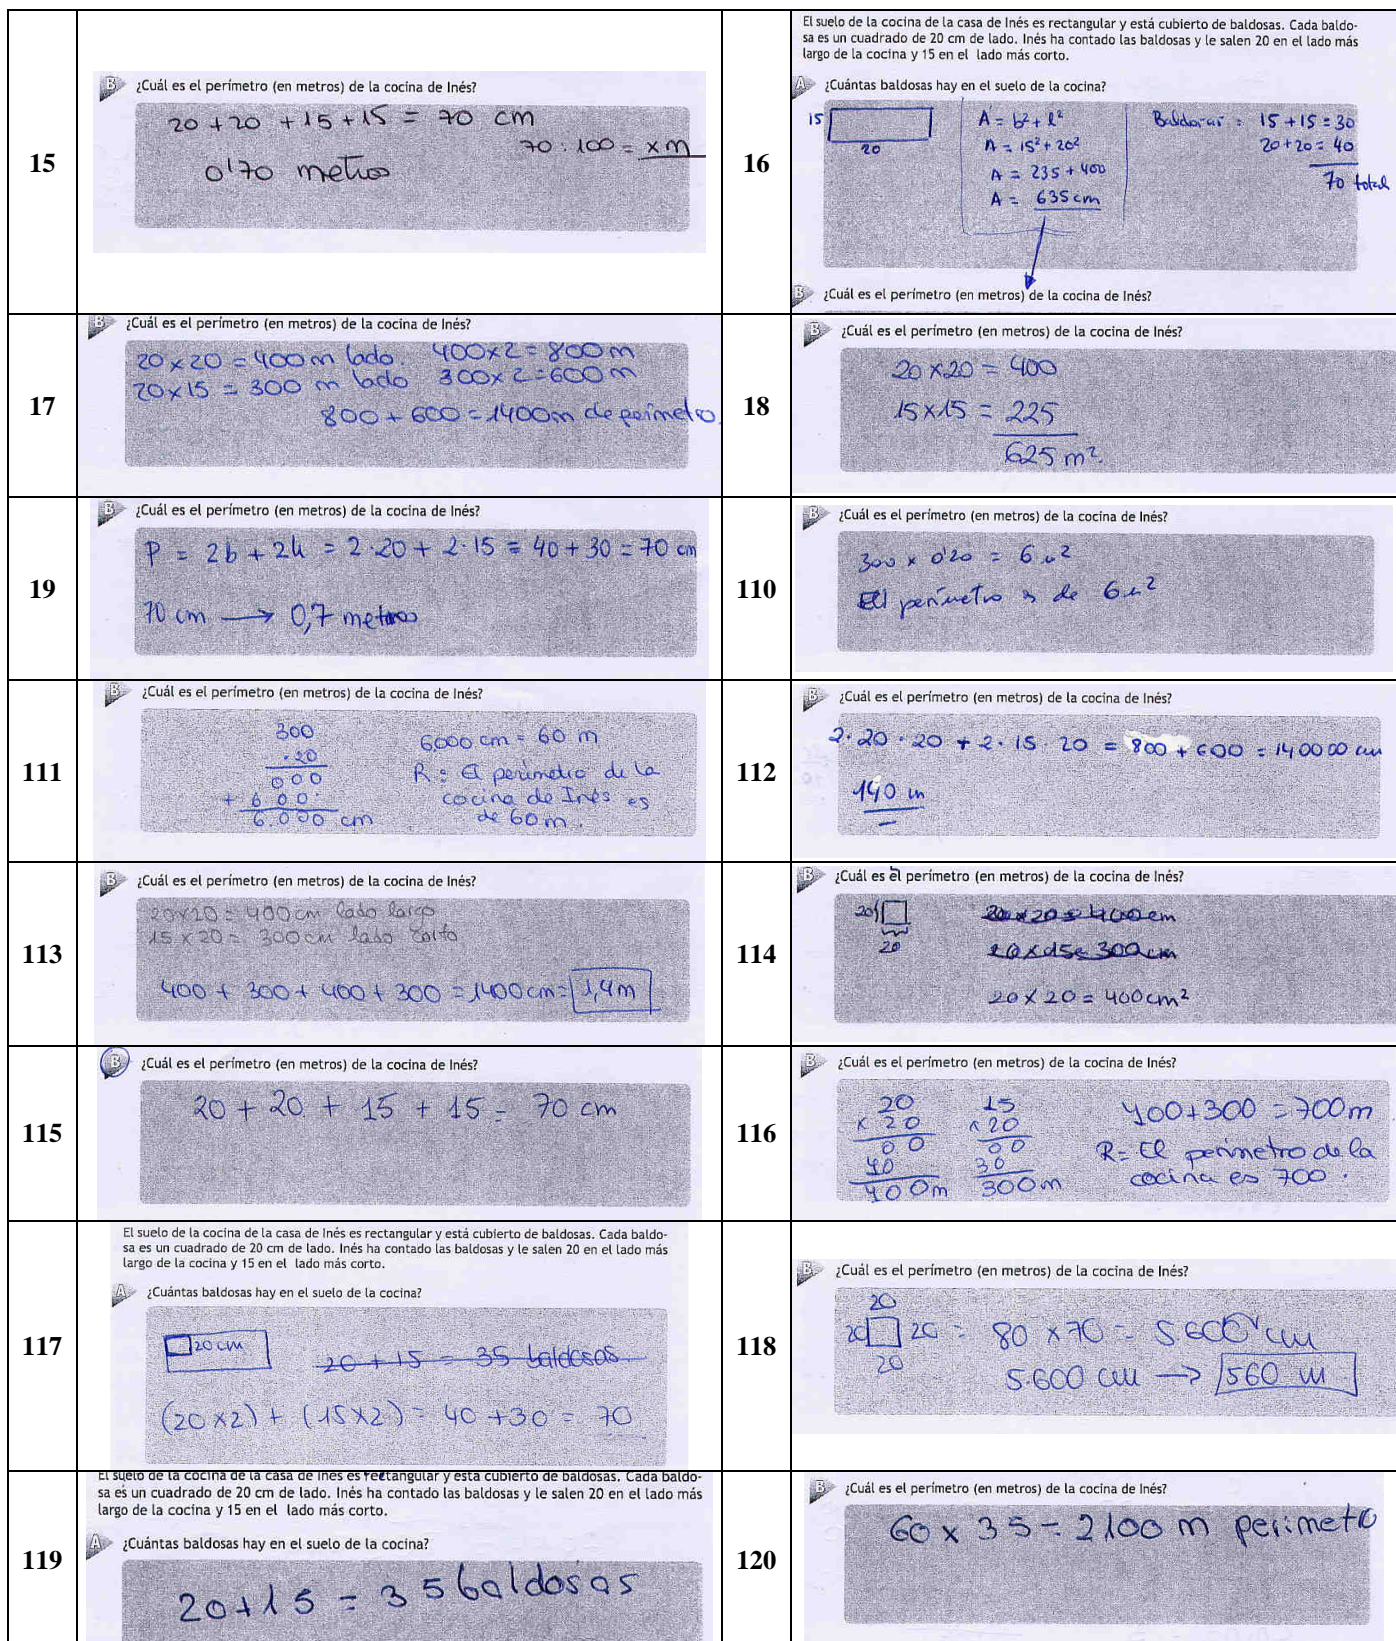 15
B ¿Cuál es el perímetro (en metros) de la cocina de Inés?
20 + 20 + 15 + 15 = 70 cm
70 : 100 = x m
0'70 metros
16
El suelo de la cocina de la casa de Inés es rectangular y está cubierto de baldosas. Cada baldo-
sa es un cuadrado de 20 cm de lado. Inés ha contado las baldosas y le salen 20 en el lado más
largo de la cocina y 15 en el lado más corto.
A ¿Cuántas baldosas hay en el suelo de la cocina?
15
20
A = b² + l²
A = 15² + 20²
A = 235 + 400
A = 635 cm
Baldosas = 15 + 15 = 30
20 + 20 = 40
70 total
B ¿Cuál es el perímetro (en metros) de la cocina de Inés?
17
B ¿Cuál es el perímetro (en metros) de la cocina de Inés?
20 x 20 = 400 m lado. 400 x 2 = 800 m
20 x 15 = 300 m lado 300 x 2 = 600 m
800 + 600 = 1400 m de perímetro.
18
B ¿Cuál es el perímetro (en metros) de la cocina de Inés?
20 x 20 = 400
15 x 15 = 225
625 m².
19
B ¿Cuál es el perímetro (en metros) de la cocina de Inés?
P = 2b + 2h = 2·20 + 2·15 = 40 + 30 = 70 cm
70 cm → 0,7 metros
110
B ¿Cuál es el perímetro (en metros) de la cocina de Inés?
300 x 0'20 = 6 m²
El perímetro es de 6 m²
111
B ¿Cuál es el perímetro (en metros) de la cocina de Inés?
300
·20
000
+ 600
6.000 cm
6000 cm = 60 m
R = El perímetro de la
cocina de Inés es
de 60 m.
112
B ¿Cuál es el perímetro (en metros) de la cocina de Inés?
2·20·20 + 2·15·20 = 800 + 600 = 140000 cm
140 m
113
B ¿Cuál es el perímetro (en metros) de la cocina de Inés?
20x20 = 400 cm lado largo
15 x 20 = 300 cm lado corto
400 + 300 + 400 + 300 = 1400 cm = 1,4 m
114
B ¿Cuál es el perímetro (en metros) de la cocina de Inés?
20
20
20 x 20 = 400 cm
20 x 15 = 300 cm
20 x 20 = 400 cm²
115
B ¿Cuál es el perímetro (en metros) de la cocina de Inés?
20 + 20 + 15 + 15 = 70 cm
116
B ¿Cuál es el perímetro (en metros) de la cocina de Inés?
20
x 20
00
40
400 m
15
x 20
00
30
300 m
400 + 300 = 700 m
R = El perímetro de la
cocina es 700.
117
El suelo de la cocina de la casa de Inés es rectangular y está cubierto de baldosas. Cada baldo-
sa es un cuadrado de 20 cm de lado. Inés ha contado las baldosas y le salen 20 en el lado más
largo de la cocina y 15 en el lado más corto.
A ¿Cuántas baldosas hay en el suelo de la cocina?
20 cm
20 + 15 = 35 baldosas
(20 x 2) + (15 x 2) = 40 + 30 = 70
118
B ¿Cuál es el perímetro (en metros) de la cocina de Inés?
20
20 20 = 80 x 70 = 5600 cm
20
5.600 cm → 560 m
119
El suelo de la cocina de la casa de Inés es rectangular y está cubierto de baldosas. Cada baldo-
sa es un cuadrado de 20 cm de lado. Inés ha contado las baldosas y le salen 20 en el lado más
largo de la cocina y 15 en el lado más corto.
A ¿Cuántas baldosas hay en el suelo de la cocina?
20 + 15 = 35 baldosas
120
B ¿Cuál es el perímetro (en metros) de la cocina de Inés?
60 x 35 = 2100 m perimetro